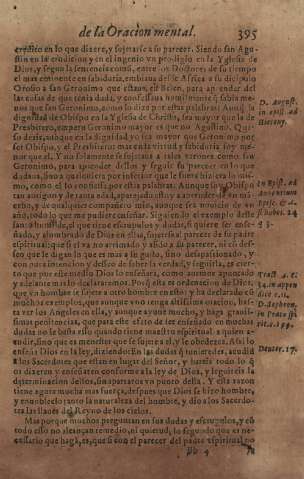 de la Oracion mental. 395
erudito en lo que dixere, y sujetarse a su parecer. Siendo san Agu-
stin en la erudicion y en el ingenio vn prodigio en la Yglesia de
Dios, y segun la sentencia comũ, entre los Doctores de su tiempo
el mas eminente en sabiduria, embiaua desde Africa a su dicipulo
Orosio a san Geronimo que estaua en Belen, para aprender del
las cosas de que tenia duda, y confiessa humilmente q̃ sabia me-
nos que san Geronimo, como lo dize por estas palabras: Aunq̃ la
dignidad de Obispo en la Yglesia de Christo, sea mayor que la de
Presbitero, empero Geronimo mayor es que no Agustino. Qui-
so dezir, aunque en la dignidad yo sea mayor que Geronimo por
ser Obispo, el Presbitero mas en la virtud y sabiduria soy me-
nor que el. Y no solamente se sujetaua a tales varones como san
Geronimo, para aprender dellos y seguir su parecer en cosas
dudosas, sino a qualquiera por inferior que le fuera hiziera lo mis-
mo, como el lo confiessa por estas palabras. Aunque soy Obispo
tan antiguo y de tanta edad, aparejado estoy a aprender de
otro, y de qualquier compañero mio, aunque sea nouicio de vn
año, todo lo que me pudiere enseñar. Siga en esto el exemplo deste
santo humilde, el que tiene escrupulos y dudas, si quiere ser ense-
ñado, y alumbrado de Dios en ellas, sujetese al parecer de su padre
espiritual: que si el va no arrimado y asido a su parecer, ni con des-
seo que le digan lo que es mas a su gusto, sino desapassionado, y
con pura intencion y desseo de saber la verdad, y seguirla, es cier-
to que por este medio Dios lo enseñara, como auemos apuntado
y adelante mas lo declararemos. Porq̃ esta es ordenacion de Dios,
que vn hombre se sujete a otro hombre en esto: y ha declarado cõ
muchos exemplos, que aunque vno tenga altissima oracion, has-
ta ver los Angeles en ella, y aunque ayune mucho, y haga gran-
dissimas penitencias, que para este efeto de ser enseñado en muchas
dudas no le basta esto quando tiene maestro espiritual a quien a-
cudir, sino que es menester que se sujete a el, y le obedezca. Assi lo
enseña Dios en la ley, diziendo: En las dudas q̃ tuuieredes, acudid
a los Sacerdotes que estan en lugar del Señor, y hareis todo lo q̃
os dixeren y enseñaren conforme a la ley de Dios, y seguireis la
determinacion dellos, sin apartaros vn punto della. Y esta razon
tiene agora mucha mas fuerça, despues que Dios se hizo hombre,
y ennoblecio tanto la naturaleza del hombre, y dio a los Sacerdo-
tes las llaues del Reyno de los cielos.
Mas porque muchos preguntan en sus dudas y escrupulos, y cõ
todo esso no alcançan remedio, ni quietud, lo segundo que es ne-
cessario que haga, es, que si con el parecer del padre espiritual no
Bb 4
D. August.
in epist. ad
Hierony.
Deuter. 17.